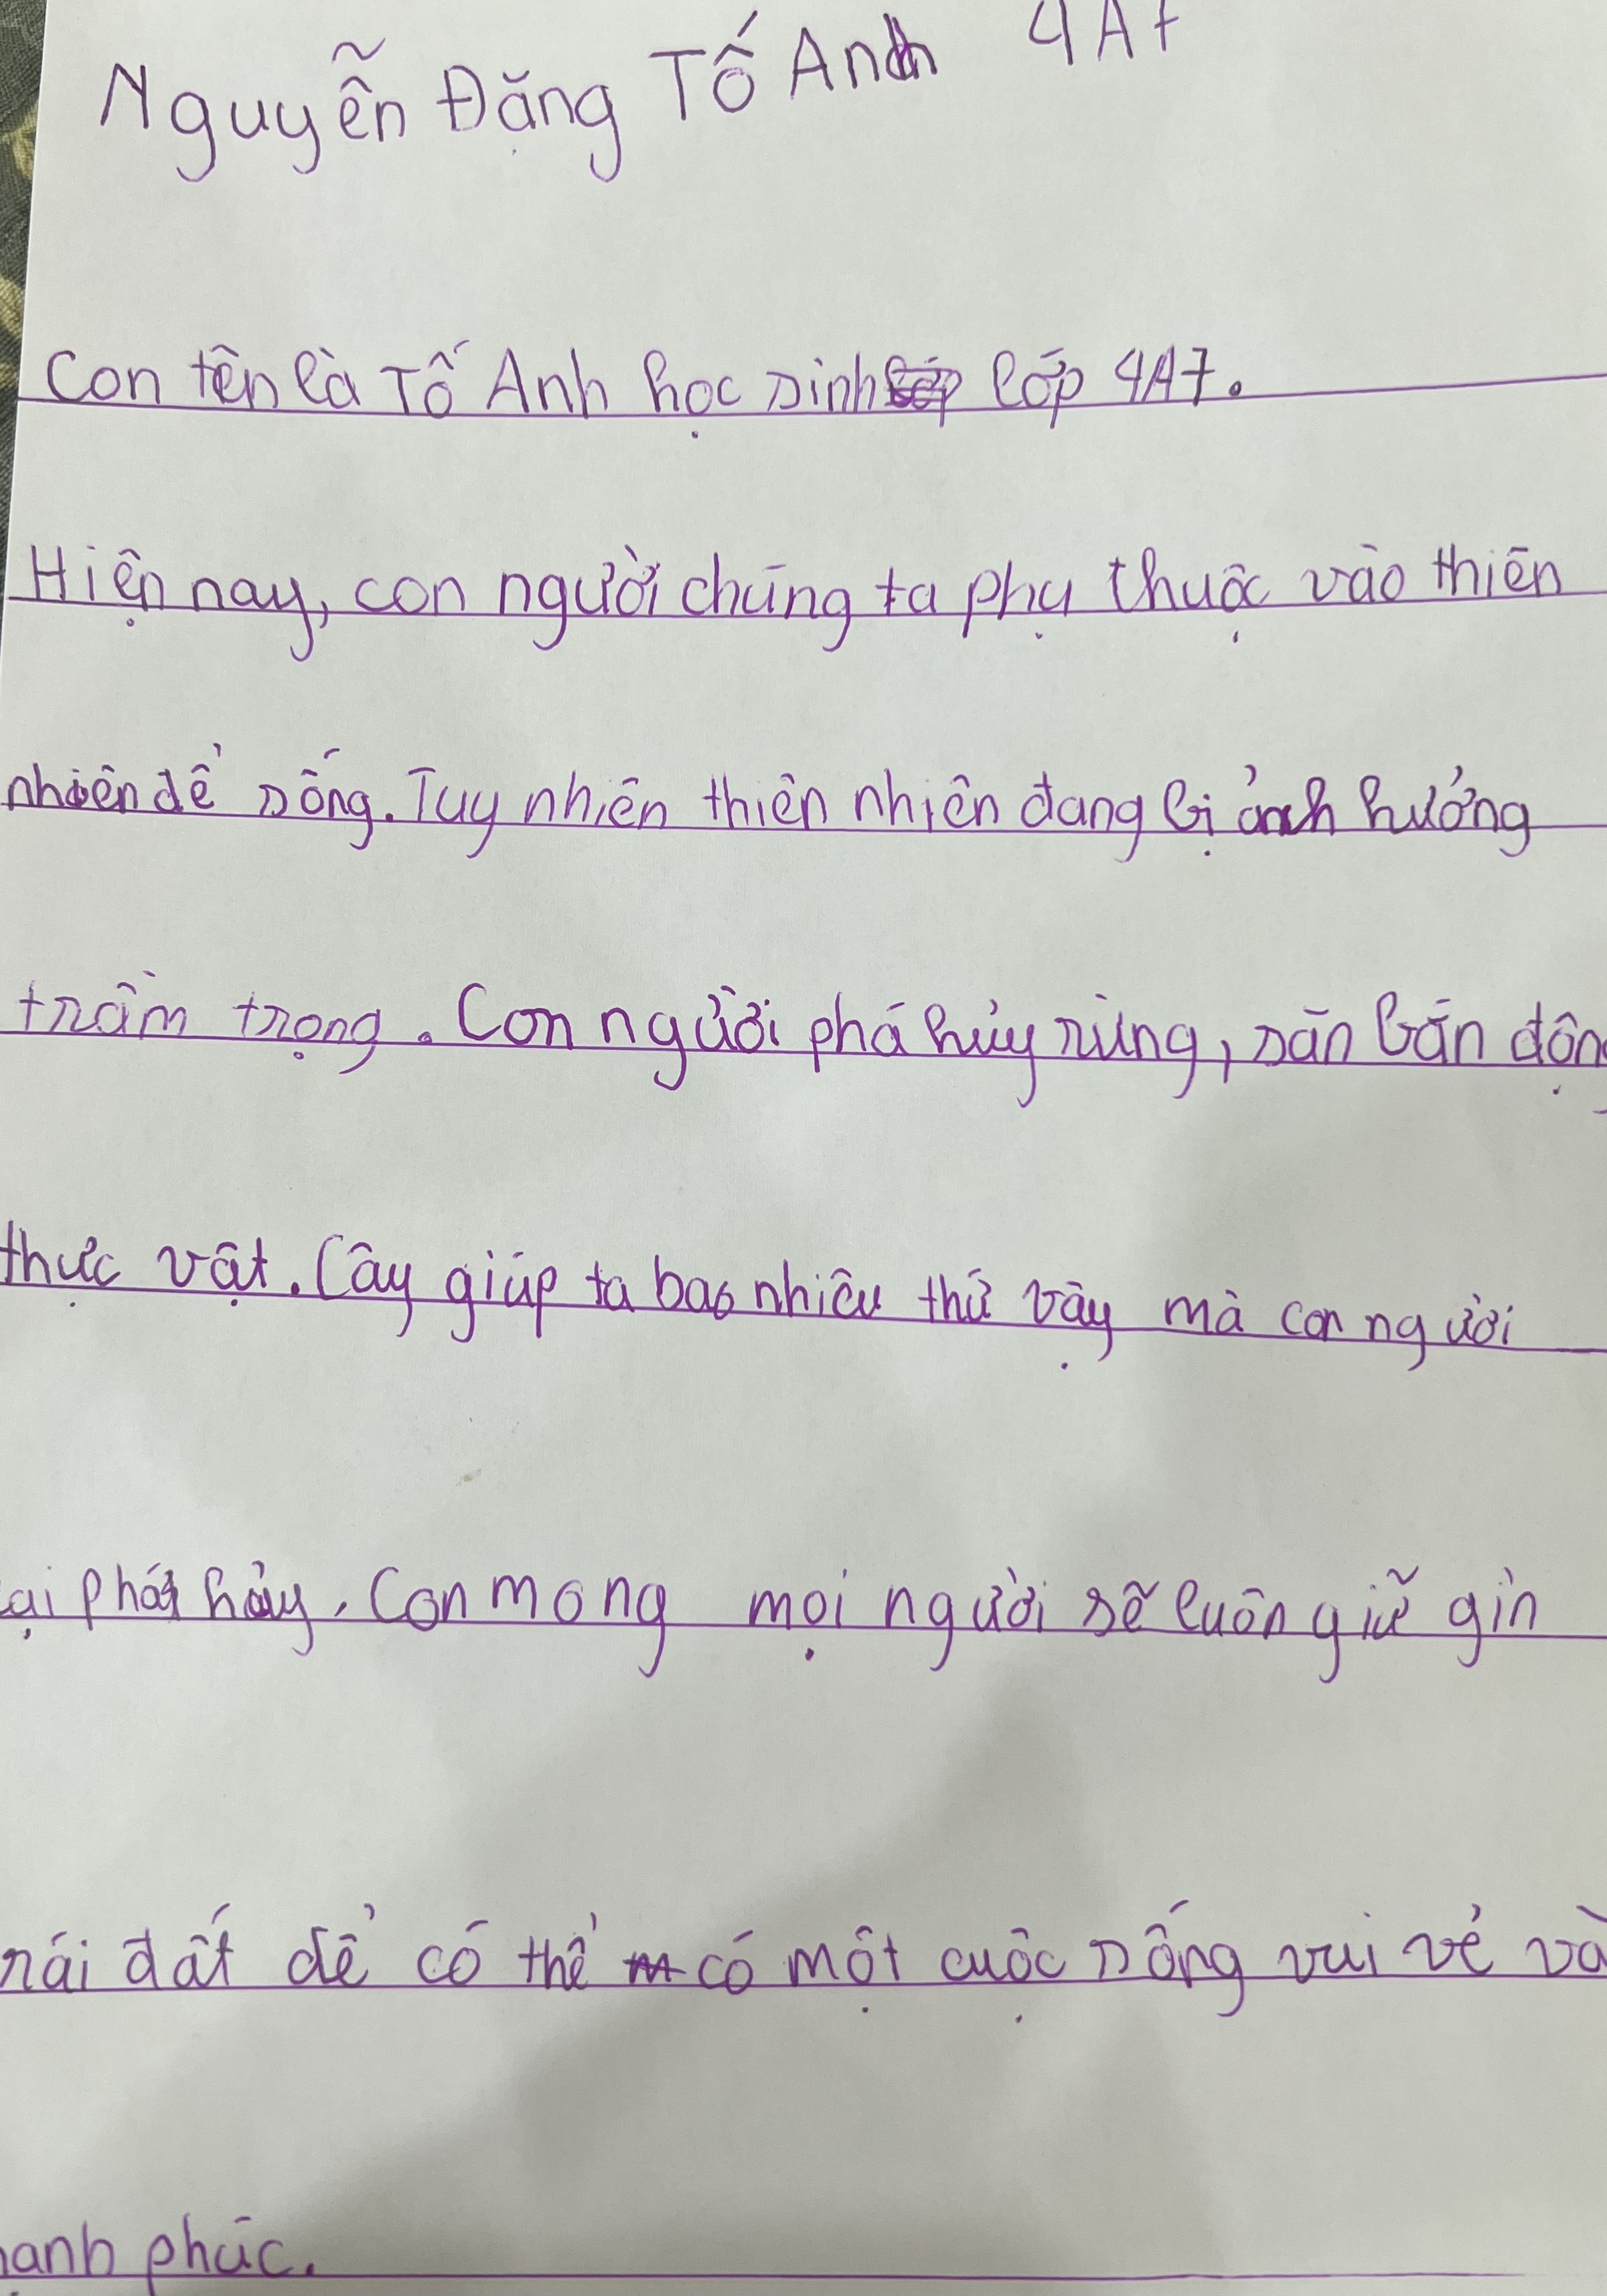 Nguyễn Đặng Tố Anh 4A7
Con tên là Tố Anh học sinh lớp 4A7.
Hiện nay, con người chúng ta phụ thuộc vào thiên
nhiên để sống. Tuy nhiên thiên nhiên đang bị ảnh hưởng
trầm trọng. Con người phá hủy rừng, săn bắn động
thực vật. Cây giúp ta bao nhiêu thứ vậy mà con người
lại phá hủy. Con mong mọi người sẽ luôn giữ gìn
rái đất để có thể có một cuộc sống vui vẻ và
hạnh phúc.